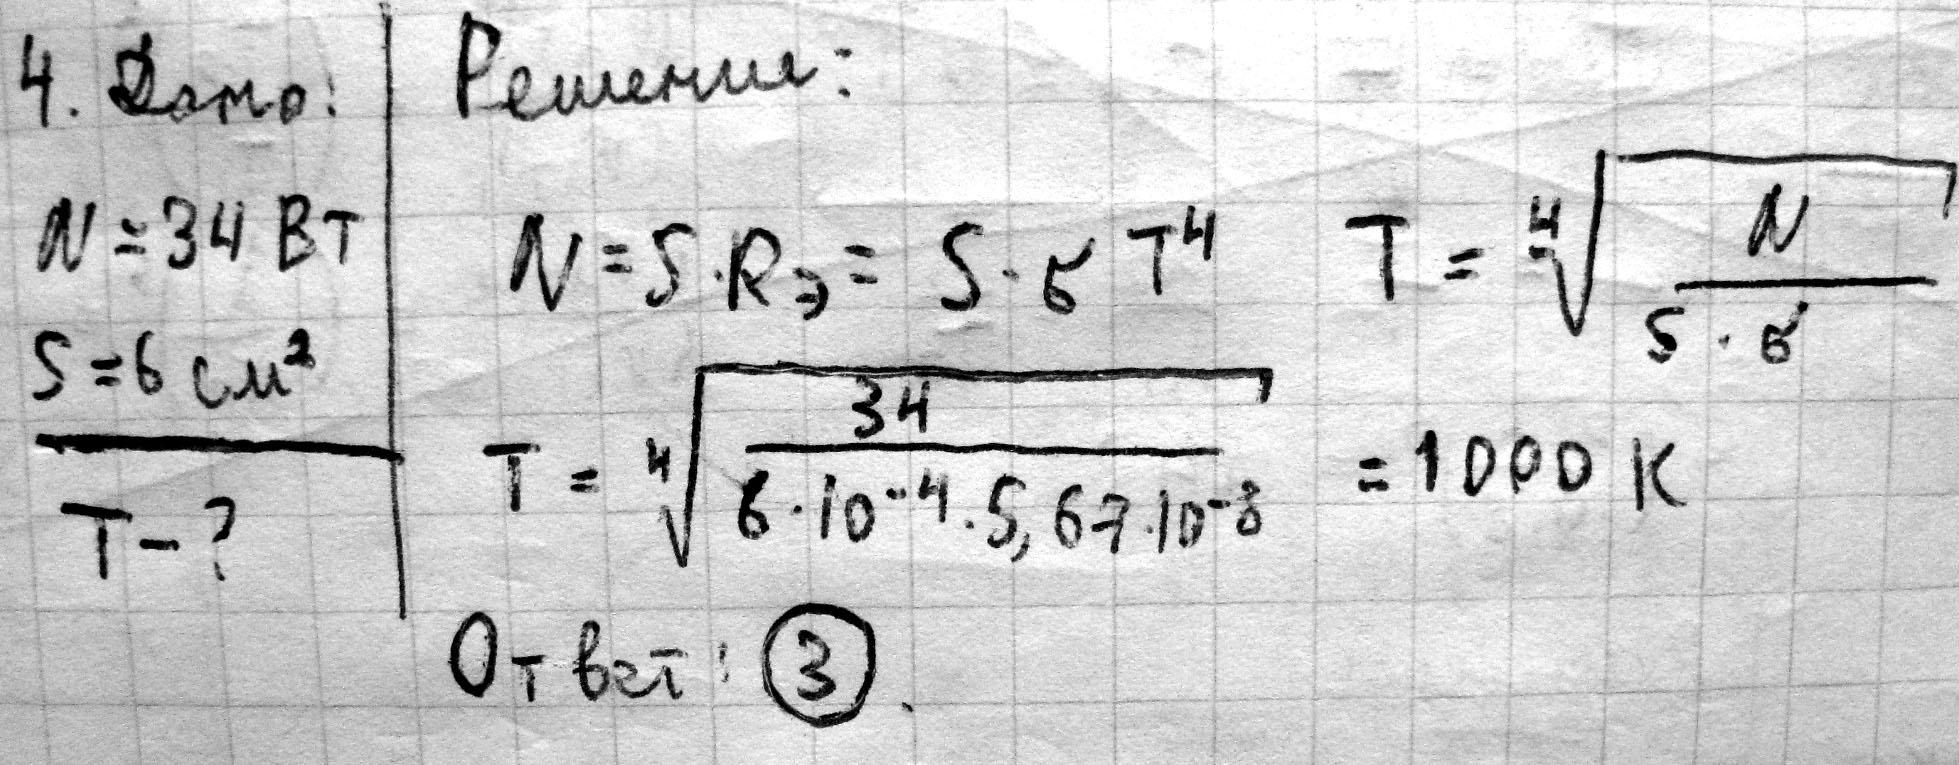 4. Дано:
N = 34 Вт
S = 6 см²
T - ?
Решение:
N = S · Rэ = S · σ T⁴ T = ⁴√(N / (S · σ))
T = ⁴√(34 / (6 · 10⁻⁴ · 5,67 · 10⁻⁸)) = 1000 К
Ответ: 3.